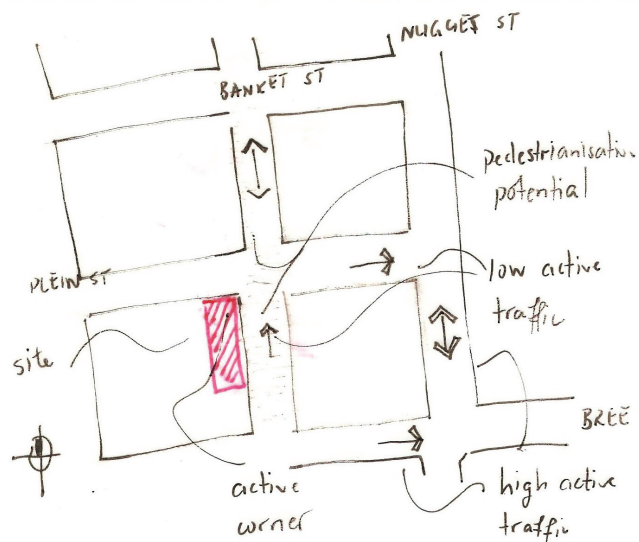 NUGGET ST
BANKET ST
pedestrianisation
potential
PLEIN ST
low active
traffic
site
BREE
active
corner
high active
traffic